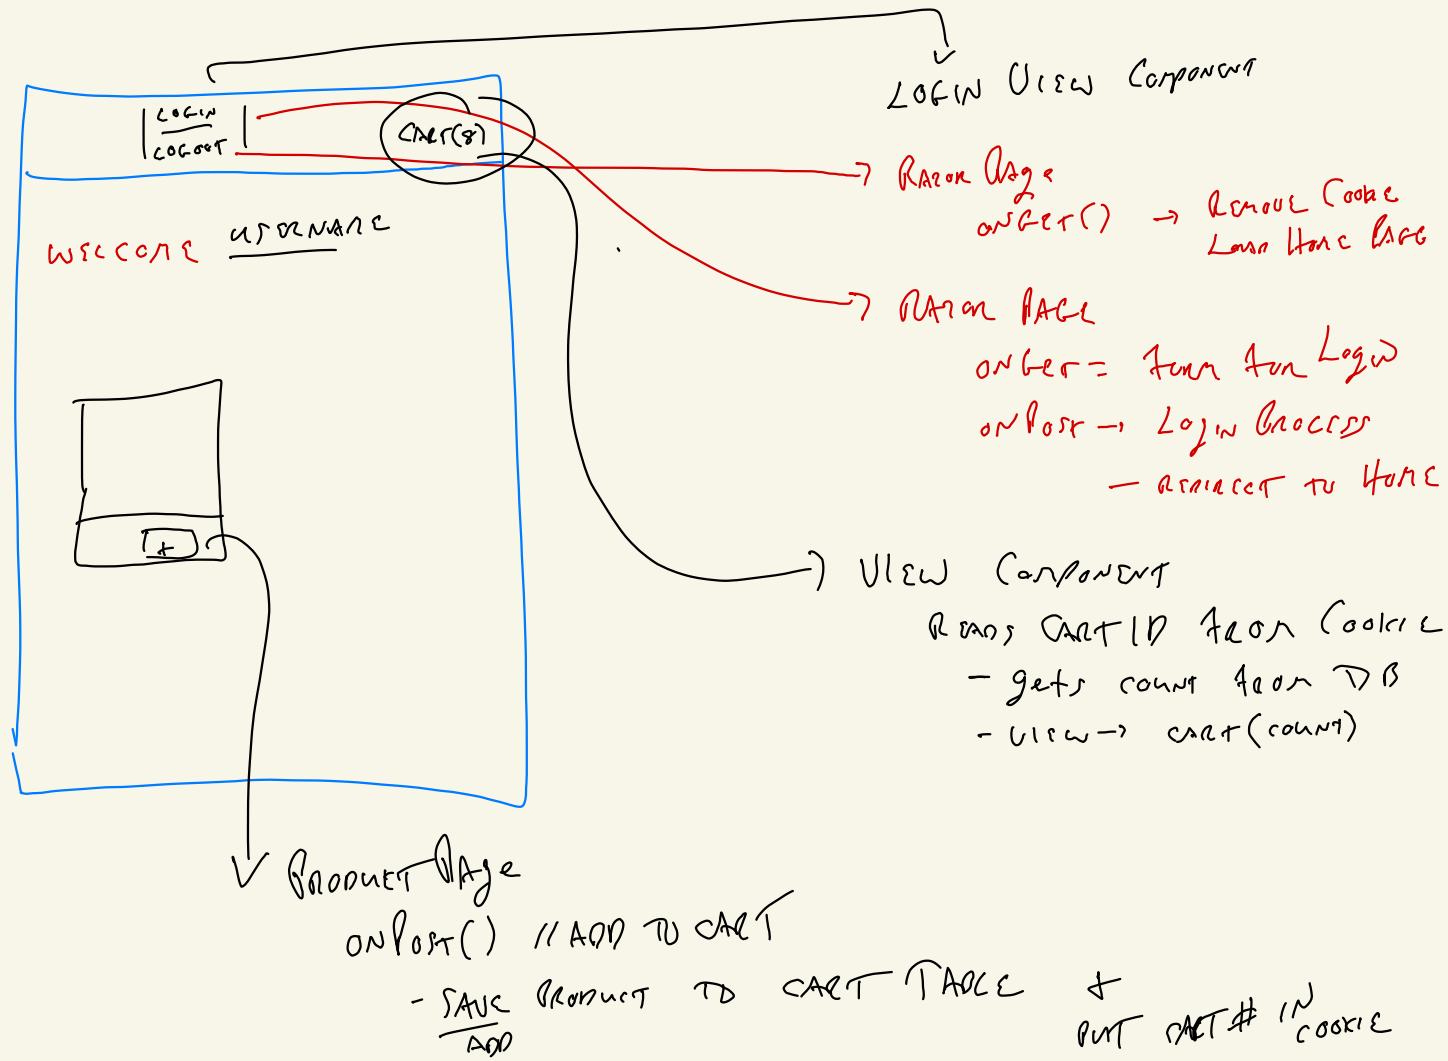 LOGIN VIEW COMPONENT
LOGIN
LOGOUT
CART(8)
RAZOR PAge
onGET() → REMOVE COOKIE
LOAD HOME PAGE
WELCOME USERNAME
RAZOR PAGE
onGET = FORM FOR LOgIN
onPOST → LOgIN PROCESS
- REDIRECT TO HOME
+
VIEW COMPONENT
READS CART ID FROM COOKIE
- gets COUNT FROM DB
- VIEW → CART(COUNT)
PRODUCT PAge
onPOST() // ADD TO CART
- SAVE PRODUCT TO CART TABLE +
ADD
PUT CART # IN COOKIE